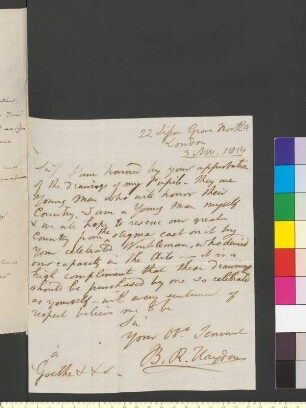 22 Lisson Grove North
London
3 Nov. 1819
Sir, I am honored by your approbation
of the drawings of my Pupils — They are
Young Men who will honor their
Country. I am a Young Man myself
& we all hope to rescue our great
Country from the stigma cast on it by
your celebrated Winkleman, who denied
our capacity in the Arts — it is a
high compliment that these Drawings
should be purchased by one so celebrated
as yourself with every sentiment of
respect believe me to be
Sir
Your Obt. Servant
B. R. Haydon
a
Goethe &c &c